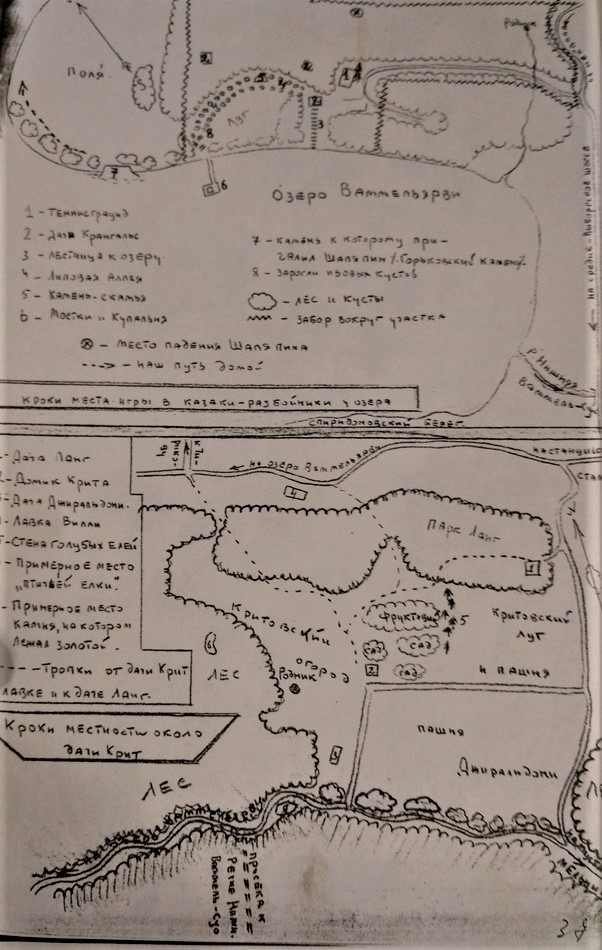 Родник
Поля
Луг
6
7
8
Озеро Ваммельярви
1 - Теннисграунд
2 - Дача Крангальс
3 - Лестница к озеру
4 - Липовая Аллея
5 - Камень-скамья
6 - Мостки и Купальня
7 - Камень к которому при-
чалил Шаляпин /. Горьковский камень/.
8 - Заросли ивовых кустов
- Лес и кусты
- Забор вокруг участка
- Место падения Шаляпина
- Наш путь домой
на средне-Выборгское шоссе
р. Нижняя
Ваммель-Суо
Кроки места игры в казаки-разбойники у озера
Спиридоновский берег.
- Дача Ланг
- Домик Крита
- Дача Джиральдони.
- Лавка Вилли
- Стена голубых елей
- Примерное место
„Птичьей Елки".
- Примерное место
камня, на котором
лежал золотой.
- Тропки от дачи Крит
лавке и к даче Ланг.
Кроки местности около
дачи Крит
на озеро Ваммельярви
Парк Ланг
4
1
Фруктовый
5
сад
сад
сад
2
Критовский
луг
и пашня
Критовский
лес
6
огород
Родник
3
пашня
Джиральдони
Лес
Просека к
Речке Нижн.
Ваммель-Суо